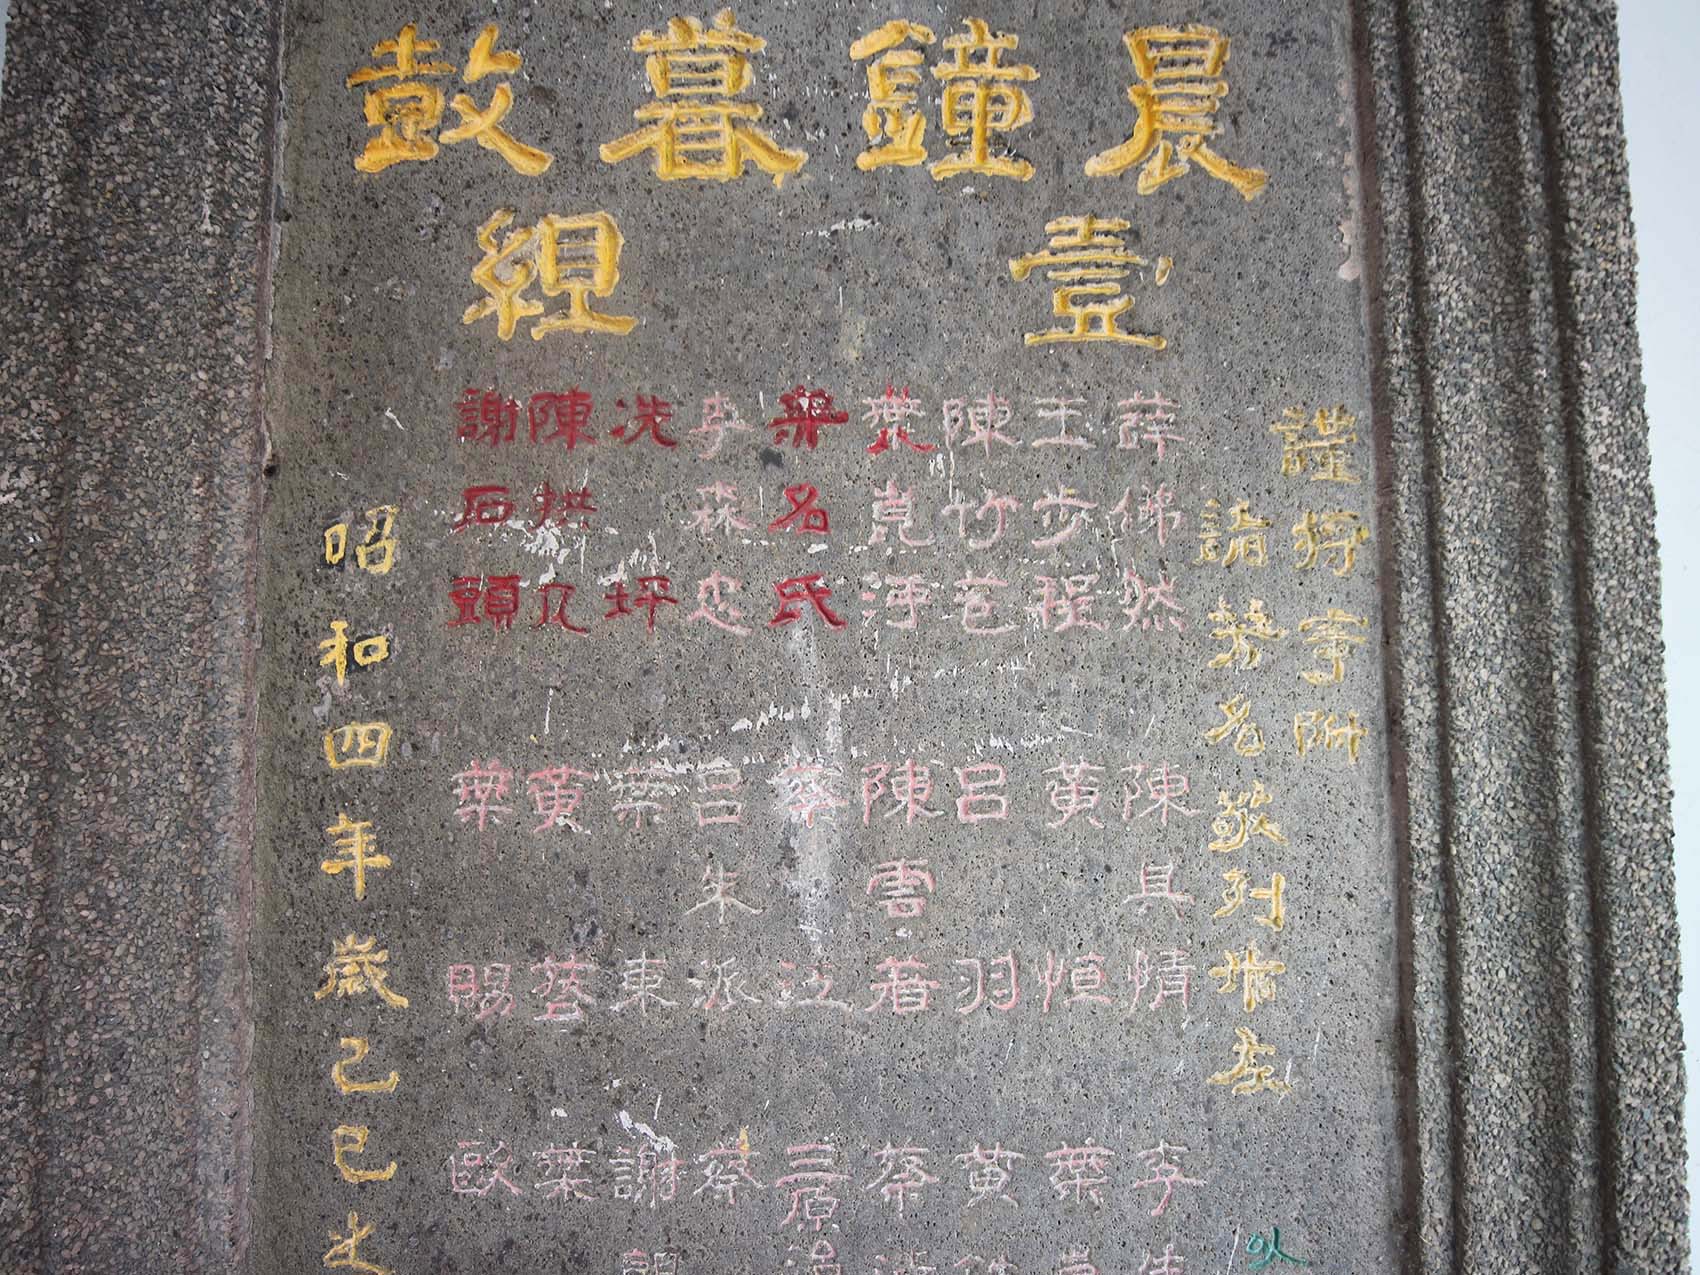 晨鐘暮鼓
壹組
謹將寄附
諸芳名敬列于左
薛佛然
王步程
陳竹芭
葉崑河
葉名氏
李森忠
冼坪
陳拱九
謝石頭
陳具情
黃恒
呂羽
陳雲著
蔡江
呂朱派
葉東
黃藝
葉賜
李
葉
黃
蔡
三原
蔡
謝
葉
歐
昭和四年歲己巳之
以